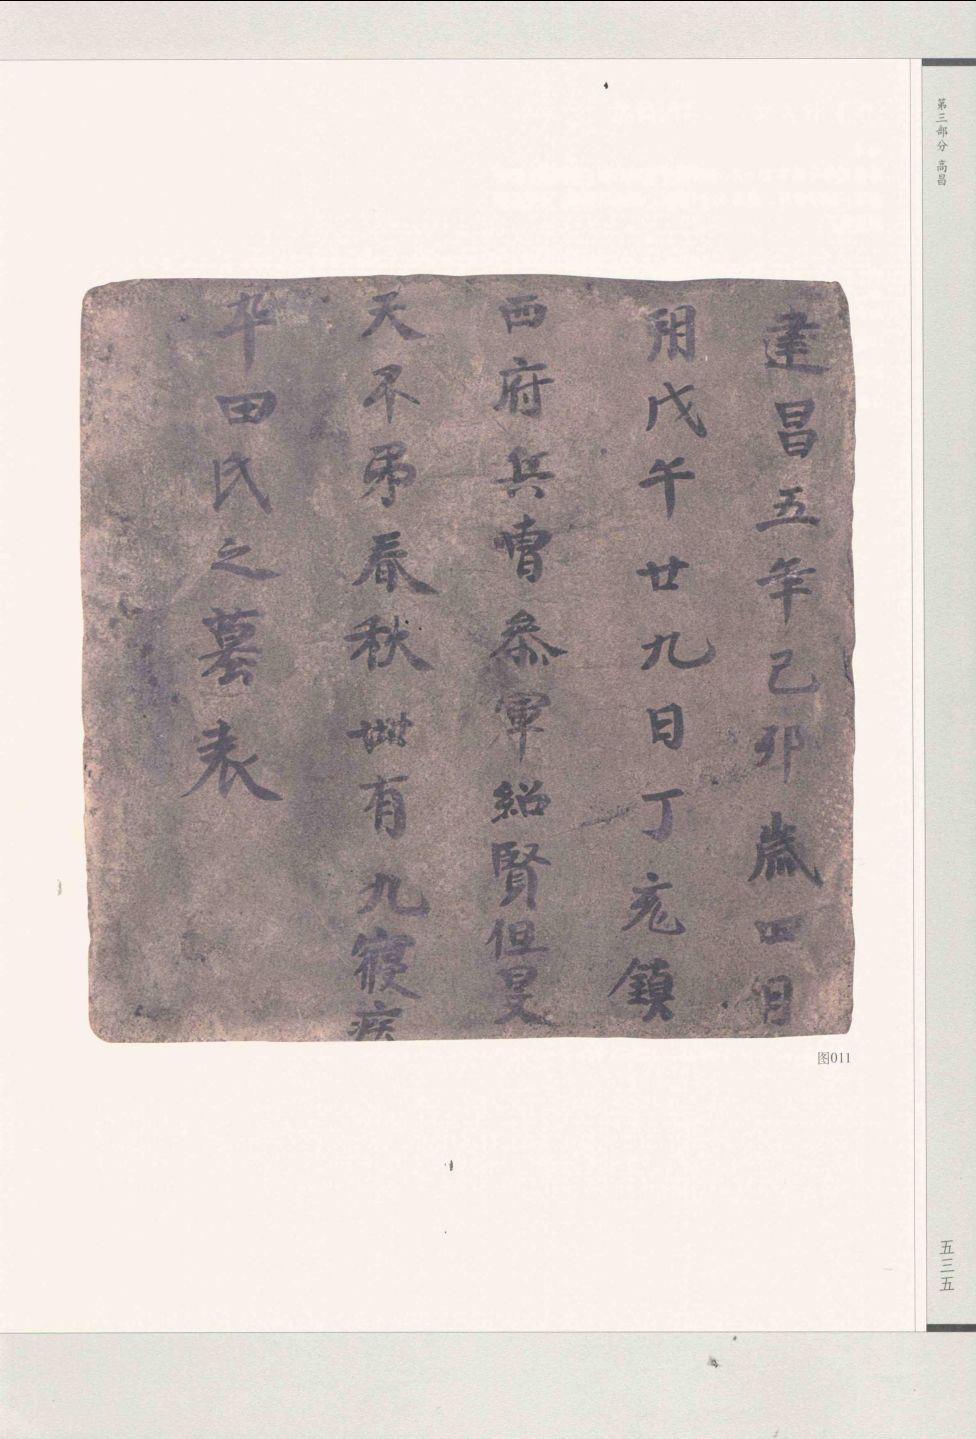 第三部分 高昌
建昌五年己卯歲四月
朔戊午廿九日丁亥鎮
西府兵曹叅軍紹賢但旻
天不弔春秋卌有九寢疾
卒田氏之墓表
图011
五三五